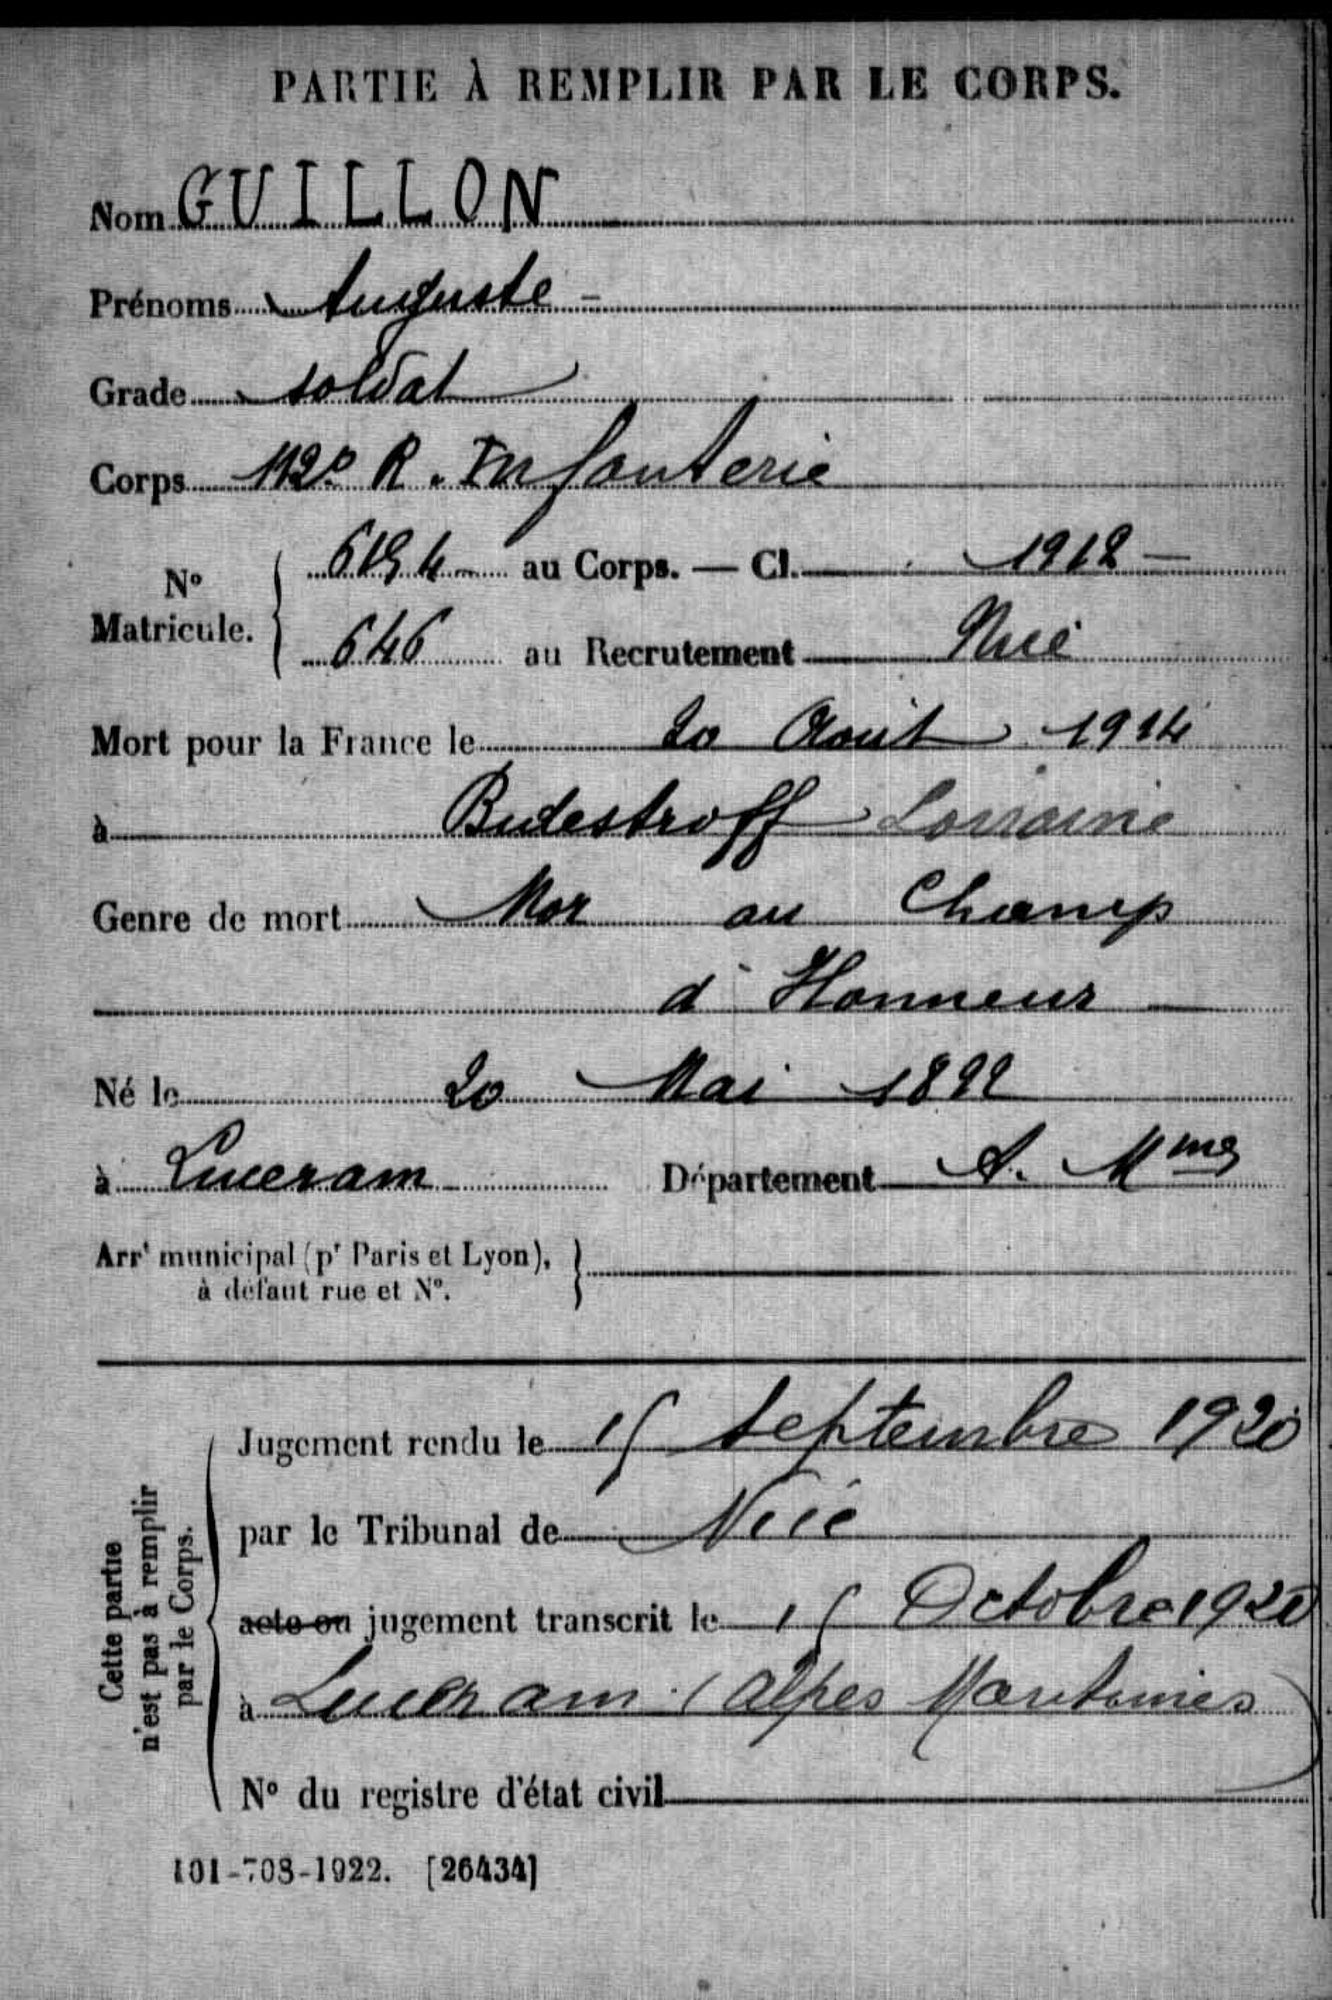 PARTIE À REMPLIR PAR LE CORPS.
Nom GUILLON
Prénoms Auguste
Grade soldat
Corps 112e R. Infanterie
N° Matricule. 6194 au Corps. — Cl. 1912
646 au Recrutement Nice
Mort pour la France le 20 Août 1914
à Bidestroff Lorraine
Genre de mort Mor au Champ
d'Honneur
Né le 20 Mai 1892
à Luceram Département A. Mmes
Arrt municipal (pr Paris et Lyon),
à défaut rue et N°.
Cette partie
n'est pas à remplir
par le Corps.
Jugement rendu le 15 Septembre 1920
par le Tribunal de Nice
acte ou jugement transcrit le 15 Octobre 1920
à Luceram (Alpes Maritimes)
N° du registre d'état civil
101-708-1922. [26434]